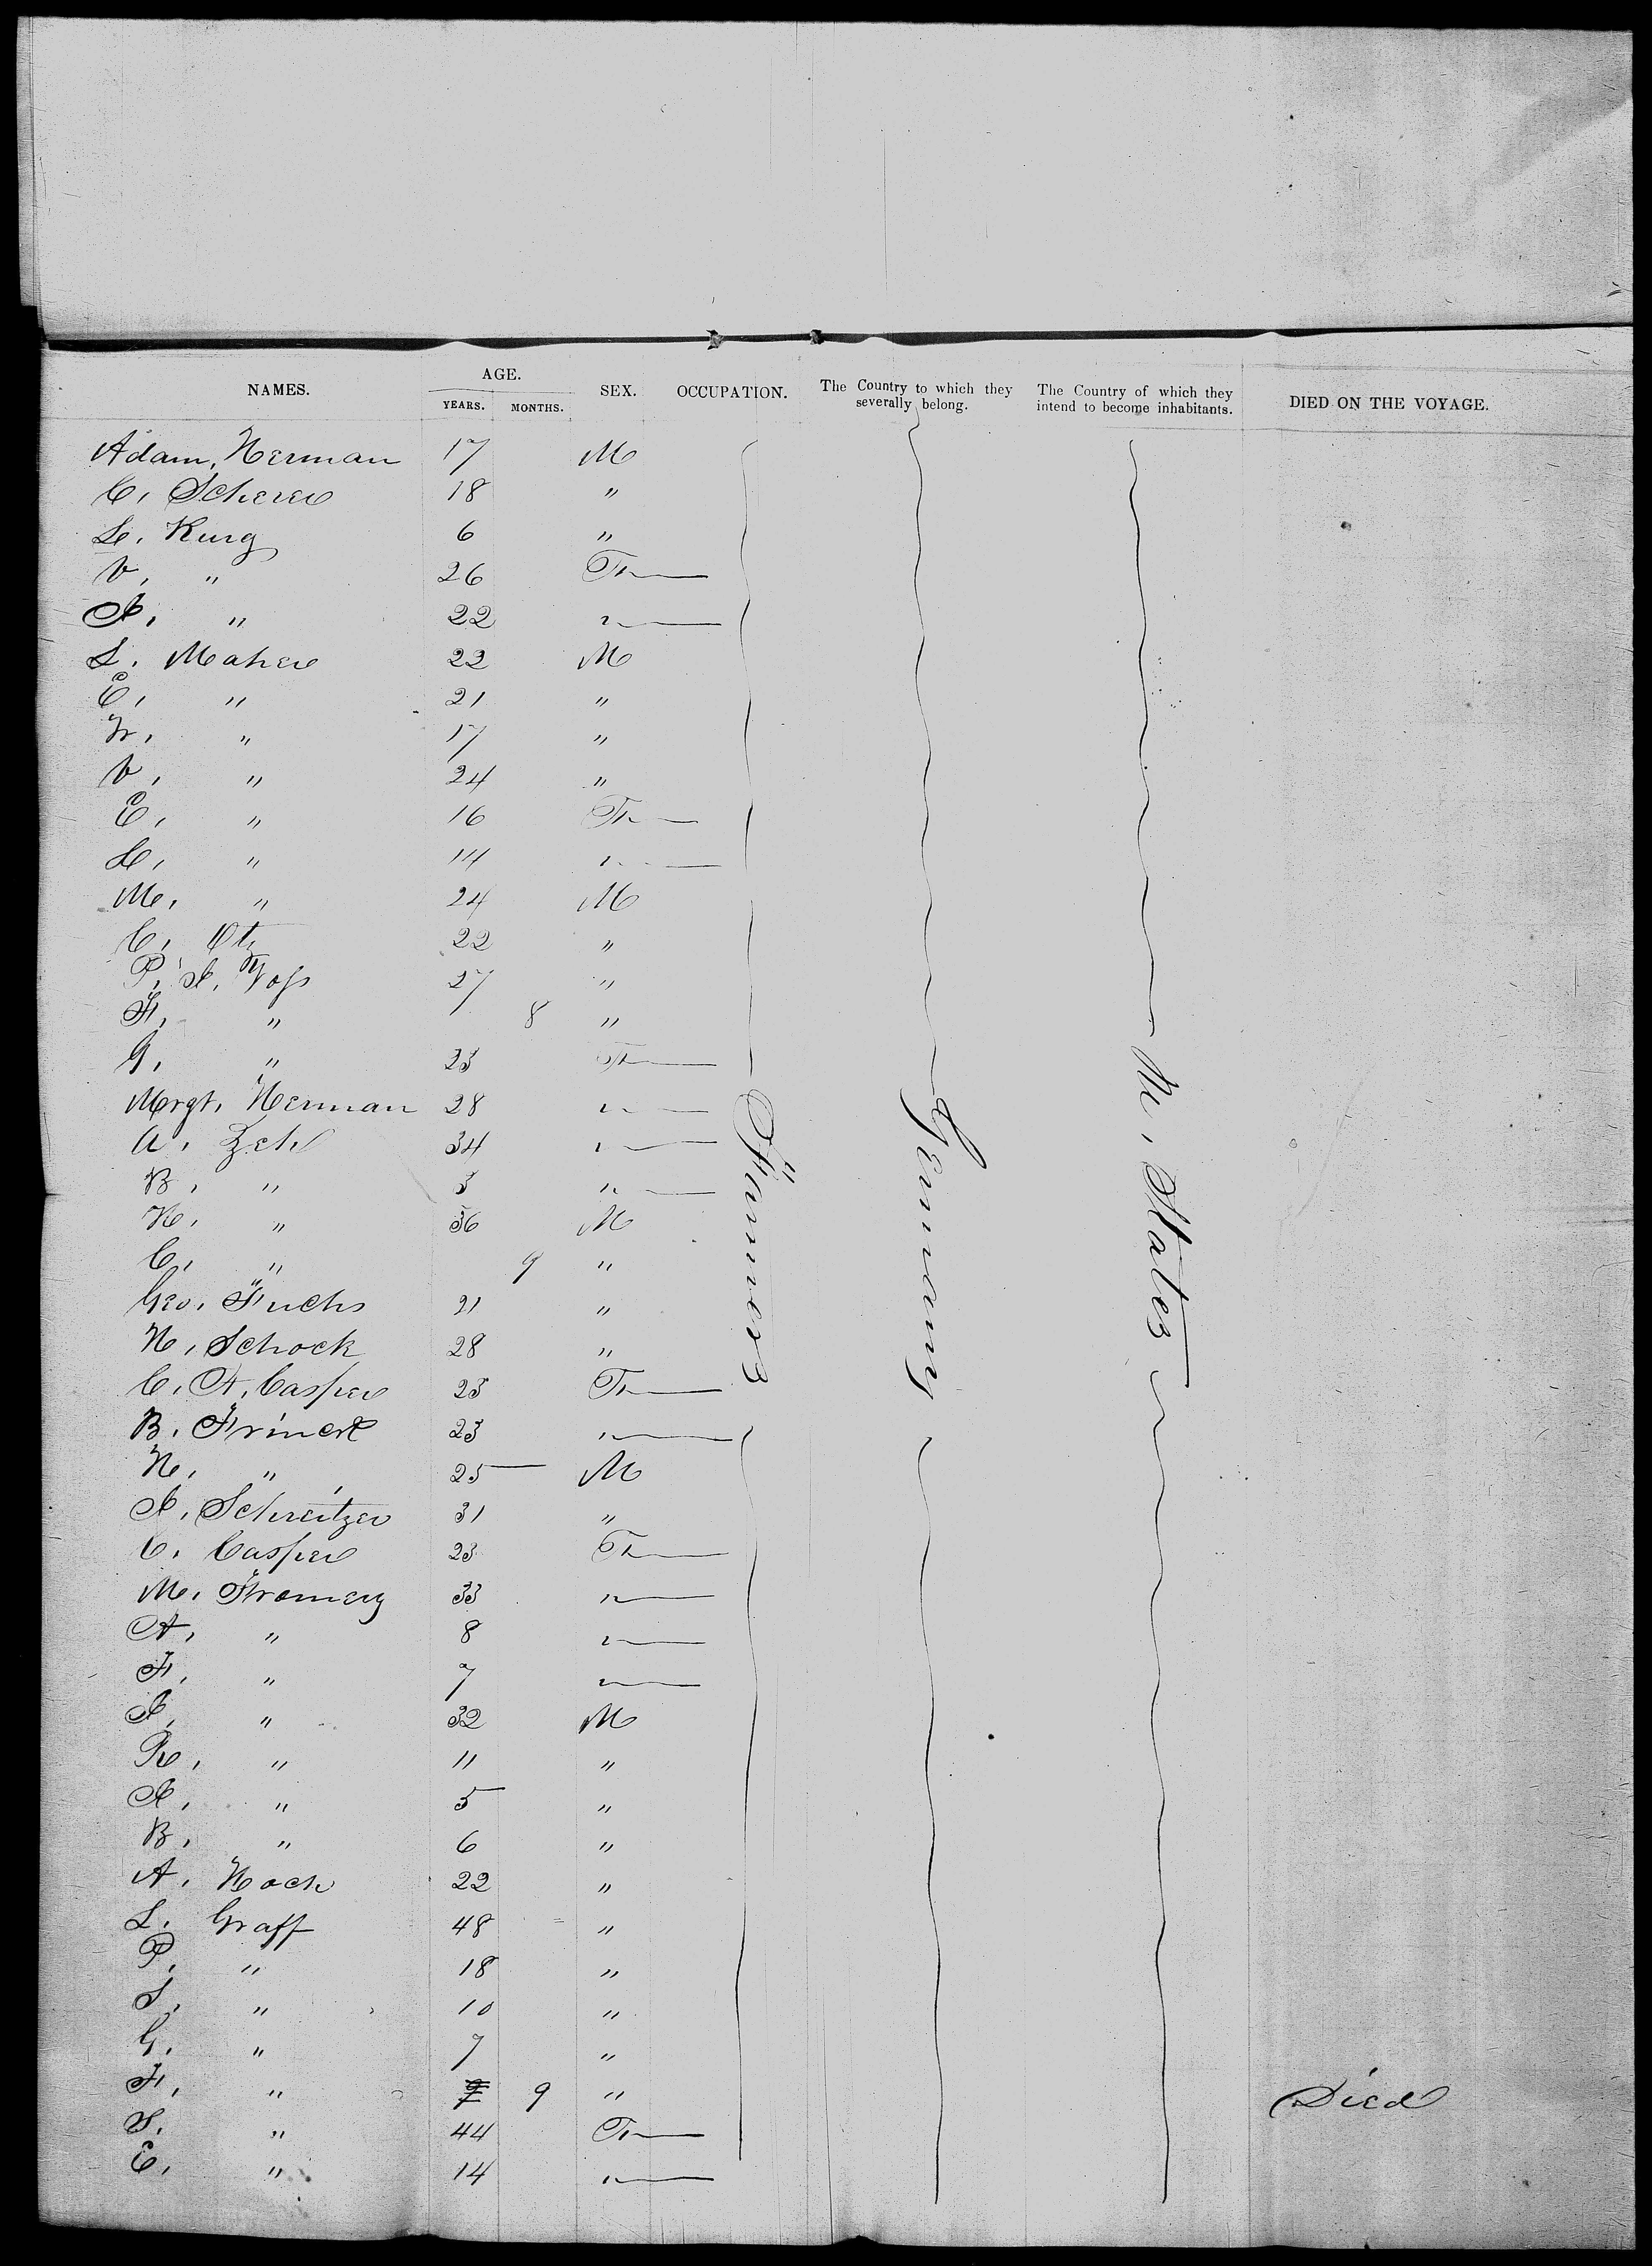 NAMES. AGE. YEARS. MONTHS. SEX. OCCUPATION. The Country to which they severally belong. The Country of which they intend to become inhabitants. DIED ON THE VOYAGE.
Adam, Herman 17 M
C, Scherer 18 "
L. Kurg 6 "
V, " 26 F
J, " 22 "
L. Maher 22 M
E, " 21 "
Fr, " 17 "
V, " 24 "
E, " 16 F
L, " 14 "
M, " 24 M
C, Otz 22 "
P, J, Voss 27 "
F, " 8 "
G, " 23 F
Mrgt, Herman 28 "
A, Zeh 34 "
B, " 3 "
K, " 36 M
C, " 9 "
Geo, Fuchs 21 "
H, Schock 28 "
C, A, Casper 23 F
B, Frinck 23 "
H, " 25 M
J, Schreitzer 31 "
C, Casper 23 F
M, Fromery 33 "
A, " 8 "
F, " 7 "
J, " 32 M
R, " 11 "
J, " 5 "
B, " 6 "
A, Hoch 22 "
L. Graff 48 "
P, " 18 "
J, " 10 "
G, " 7 "
F, " 9 " Died
S. " 44 F
E, " 14 "
Farmers
Germany
U, States